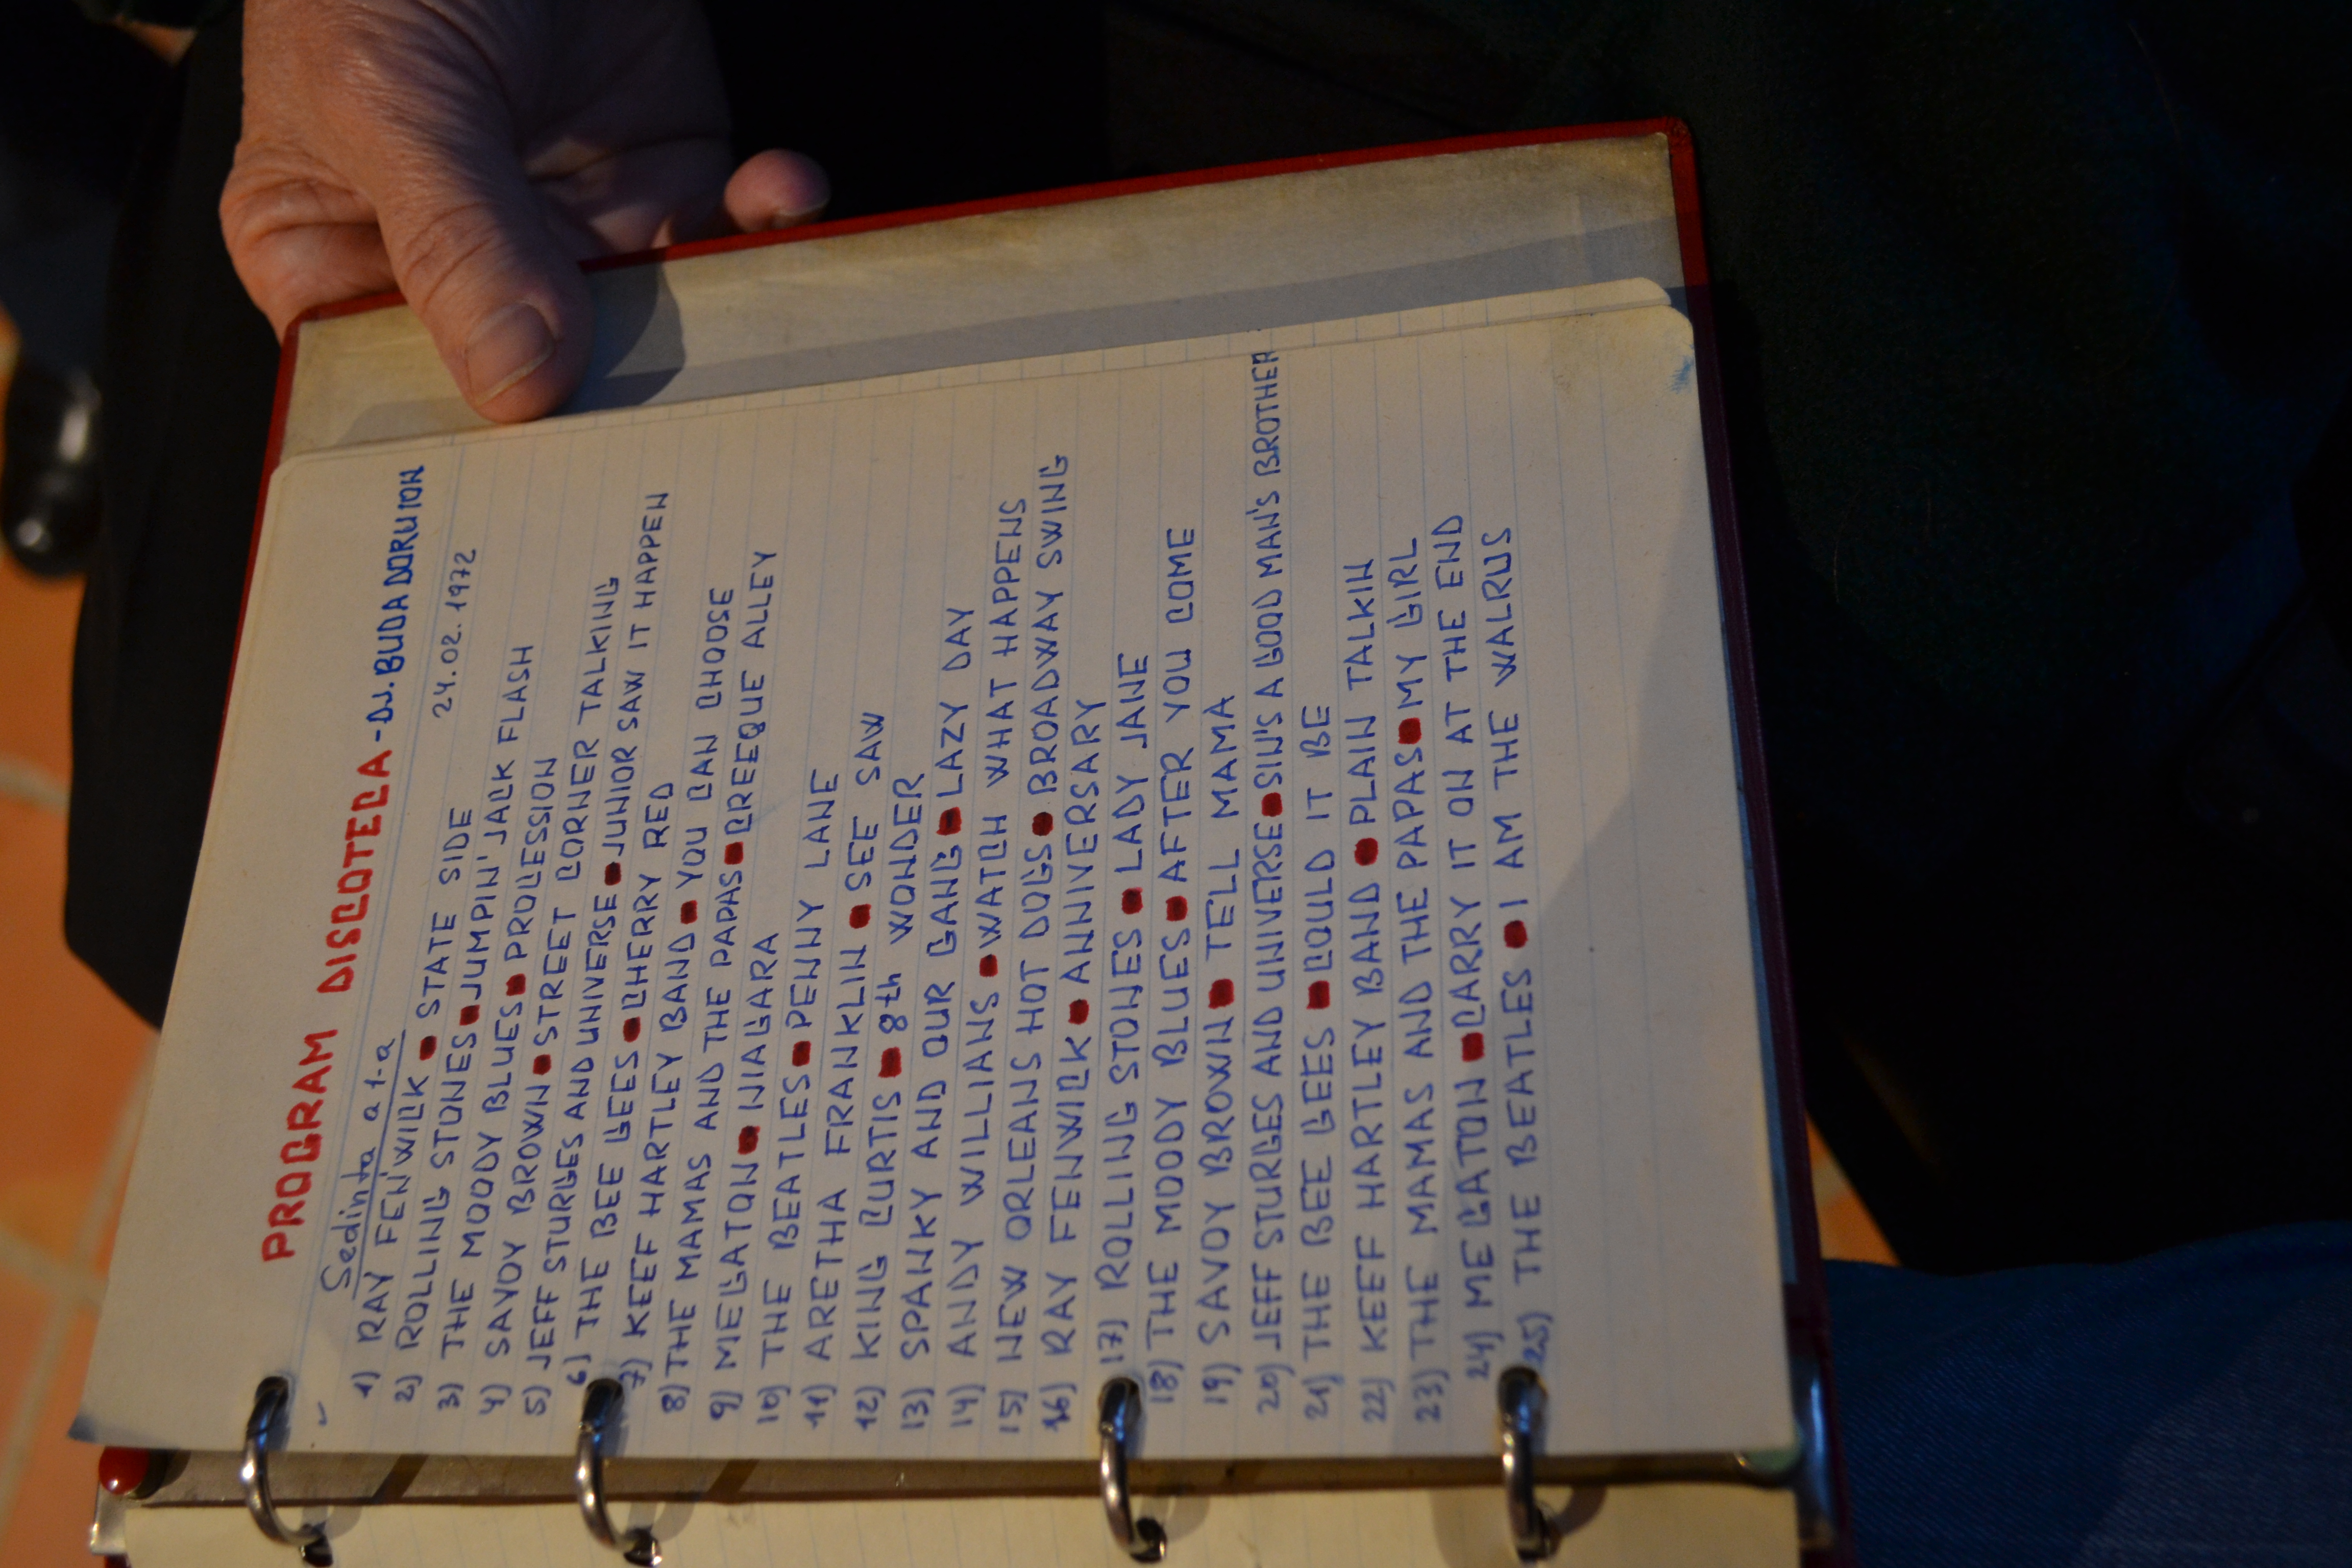 PROGRAM DISCOTECA - DJ. BUDA DORU ION
Sedinta a 1-a 24.02.1972
1) RAY FEN'WICK ■ STATE SIDE
2) ROLLING STONES ■ JUMPIN' JACK FLASH
3) THE MOODY BLUES ■ PROCESSION
4) SAVOY BROWN ■ STREET CORNER TALKING
5) JEFF STURGES AND UNIVERSE ■ JUNIOR SAW IT HAPPEN
6) THE BEE GEES ■ CHERRY RED
7) KEEF HARTLEY BAND ■ YOU CAN CHOOSE
8) THE MAMAS AND THE PAPAS ■ CREEQUE ALLEY
9) MEGATON ■ NIAGARA
10) THE BEATLES ■ PENNY LANE
11) ARETHA FRANKLIN ■ SEE SAW
12) KING CURTIS ■ 8th WONDER
13) SPANKY AND OUR GANG ■ LAZY DAY
14) ANDY WILLIANS ■ WATCH WHAT HAPPENS
15) NEW ORLEANS HOT DOGS ■ BROADWAY SWING
16) RAY FENWICK ■ ANNIVERSARY
17) ROLLING STONES ■ LADY JANE
18) THE MOODY BLUES ■ AFTER YOU COME
19) SAVOY BROWN ■ TELL MAMA
20) JEFF STURGES AND UNIVERSE ■ SIN'S A GOOD MAN'S BROTHER
21) THE BEE GEES ■ COULD IT BE
22) KEEF HARTLEY BAND ■ PLAIN TALKIN
23) THE MAMAS AND THE PAPAS ■ MY GIRL
24) MEGATON ■ CARRY IT ON AT THE END
25) THE BEATLES ■ I AM THE WALRUS